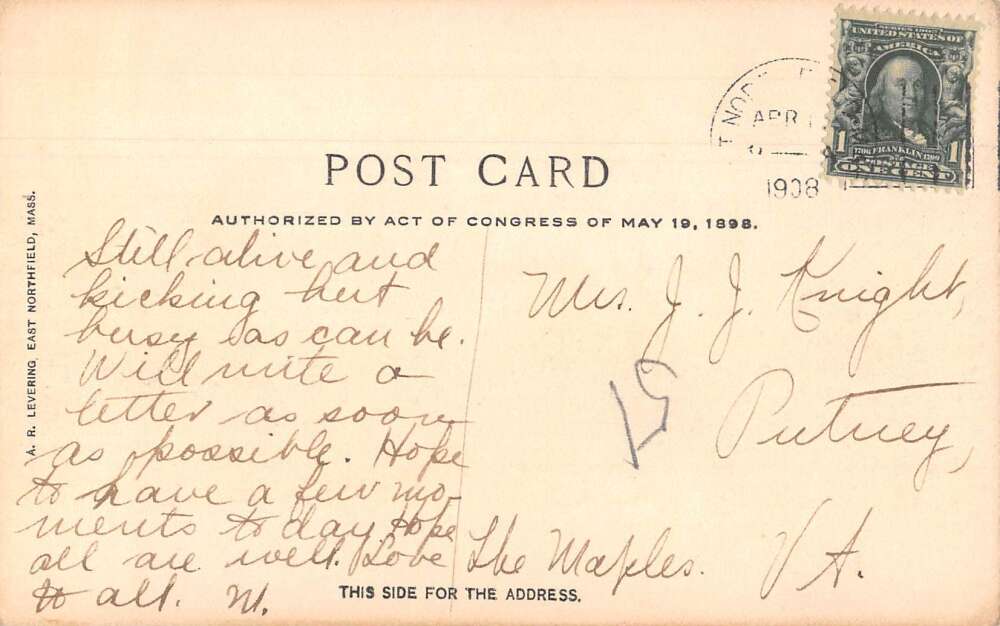 SERIES 1902
UNITED STATES OF
AMERICA
1706 FRANKLIN 1790
1 POSTAGE 1
ONE CENT
APR
1908
POST CARD
AUTHORIZED BY ACT OF CONGRESS OF MAY 19, 1898.
A. R. LEVERING, EAST NORTHFIELD, MASS.
Still alive and
kicking but
busy as can be.
Will write a
letter as soon
as possible. Hope
to have a few mo-
ments to day Hope
all are well. Love
to all. M.
Mrs. J. J. Knight,
Putney,
The Maples. Vt.
THIS SIDE FOR THE ADDRESS.